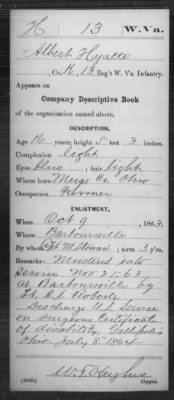 H 13 W. Va.
Albert Hyatte
Co. H, 13 Reg't W. Va. Infantry.
Appears on
Company Descriptive Book
of the organization named above.
DESCRIPTION.
Age 16 years; height 5 feet 3 inches.
Complexion light
Eyes blue; hair light
Where born Meigs Co, Ohio
Occupation Farmer
ENLISTMENT.
When Oct 9, 1863.
Where Barboursville
By whom M. ; term 3 y'rs.
Remarks: Mustered into
service Nov 25, 63
at Barboursville by
Lt. Roberts
Discharge U.S. Service
on surgeons Certificate
of disability, Gallipolis
Ohio, July 8" 1864
W. G. Hughes
Copyist.